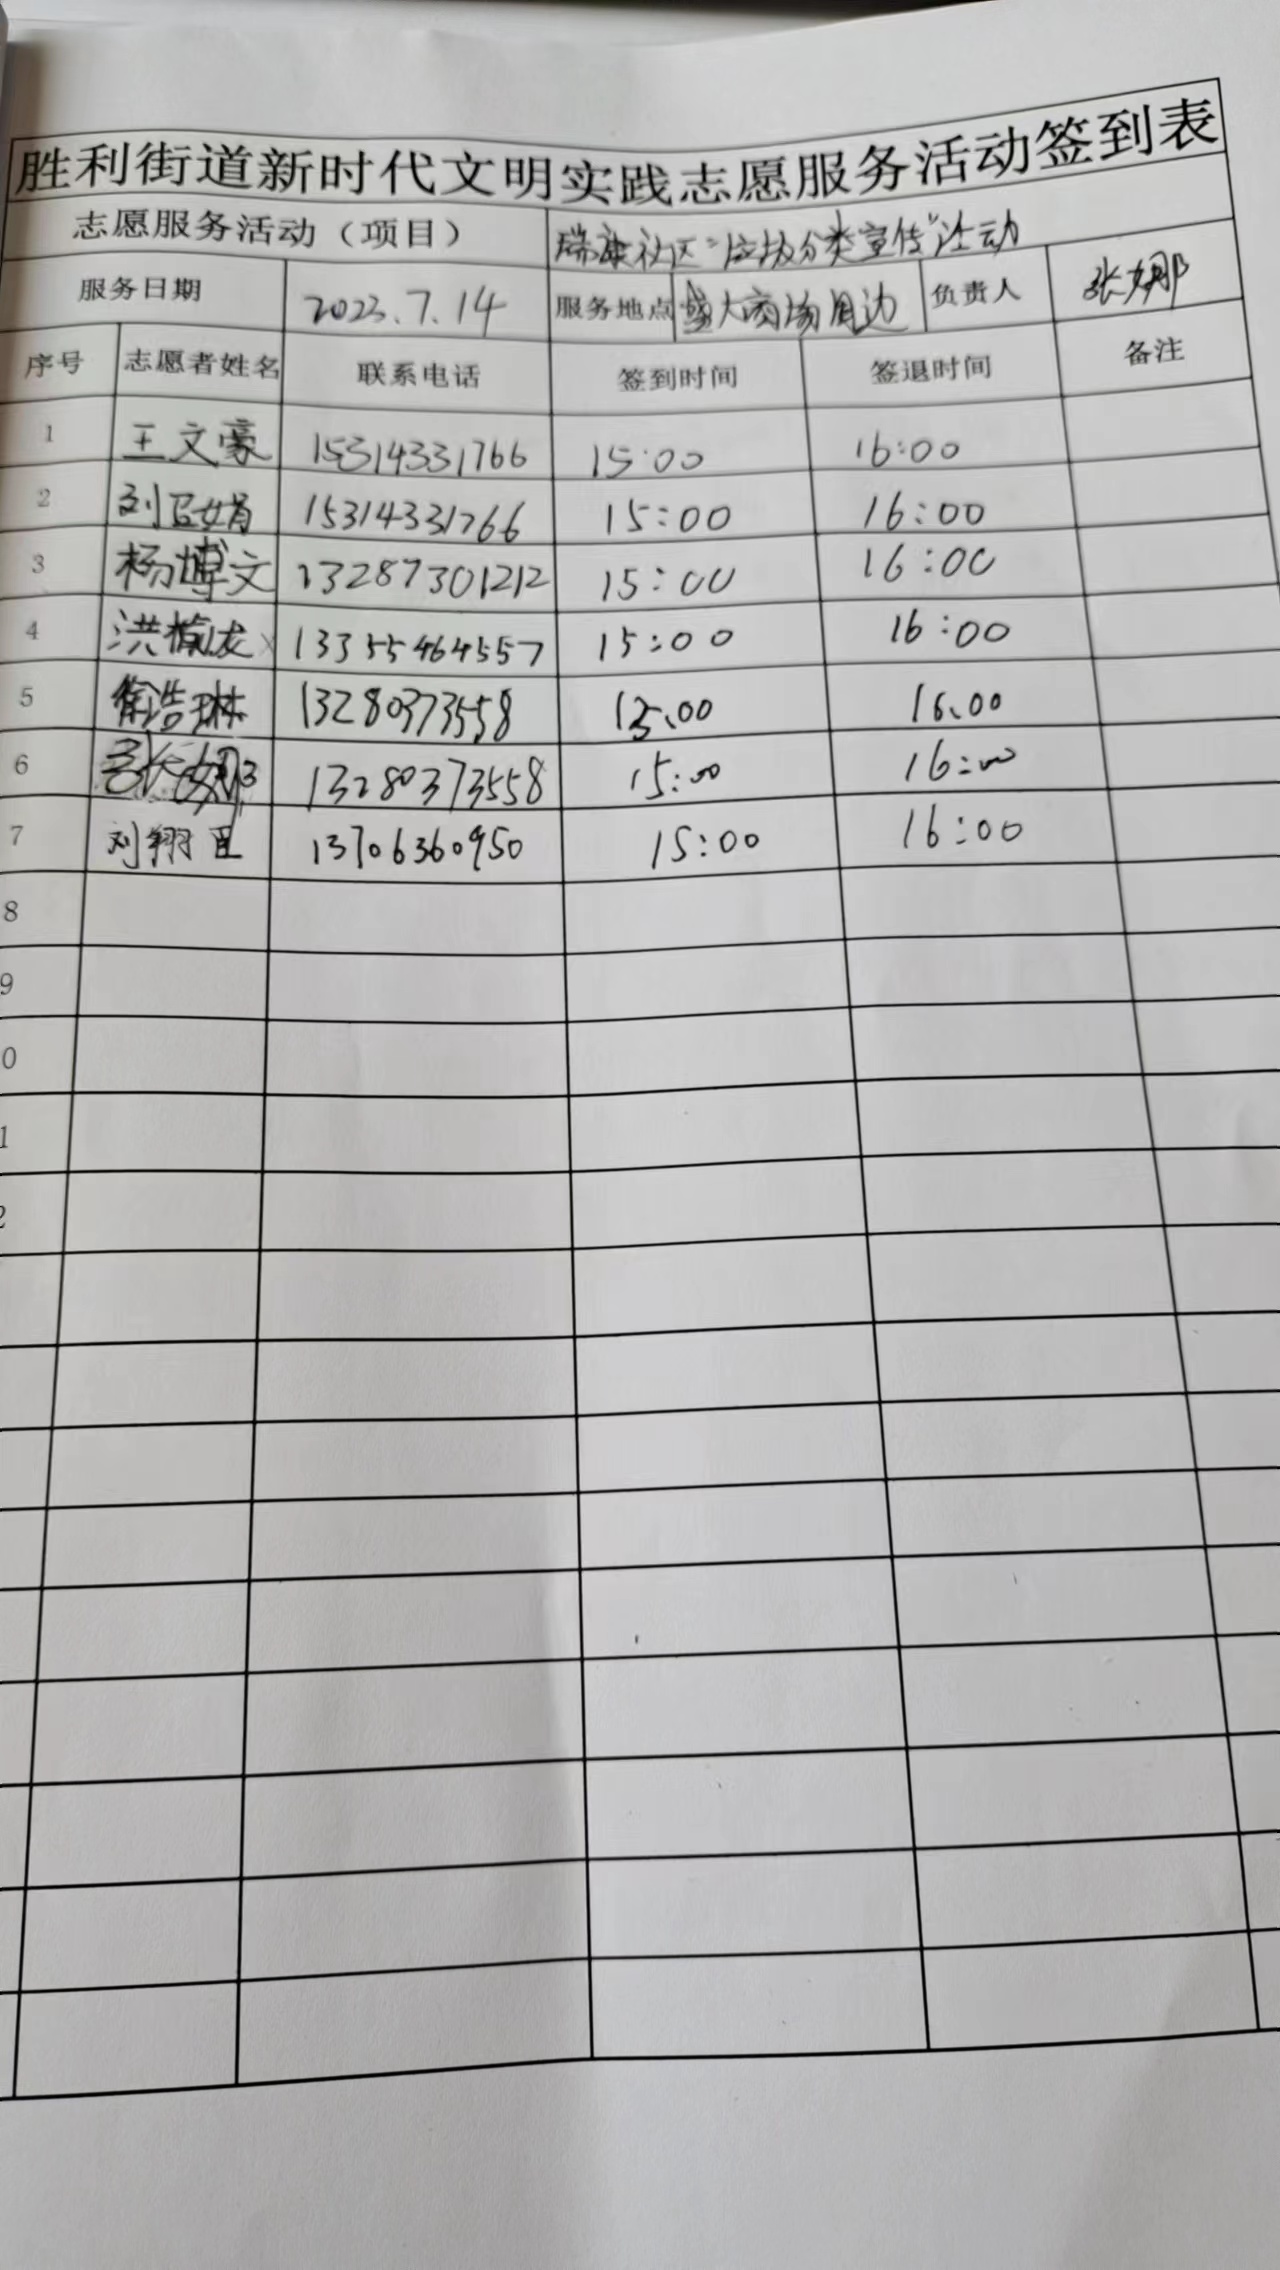 胜利街道新时代文明实践志愿服务活动签到表
志愿服务活动（项目） 瑞康社区“垃圾分类宣传”活动
服务日期 2023.7.14 服务地点 盛大商场周边 负责人 张娜
序号 志愿者姓名 联系电话 签到时间 签退时间 备注
1 王文豪 15314331766 15:00 16:00
2 15314331766 15:00 16:00
3 杨博文 13287301212 15:00 16:00
4 13355464557 15:00 16:00
5 徐浩琳 13280373558 15:00 16:00
6 张娜 13280373558 15:00 16:00
7 13706360950 15:00 16:00
8
9
0
1
2